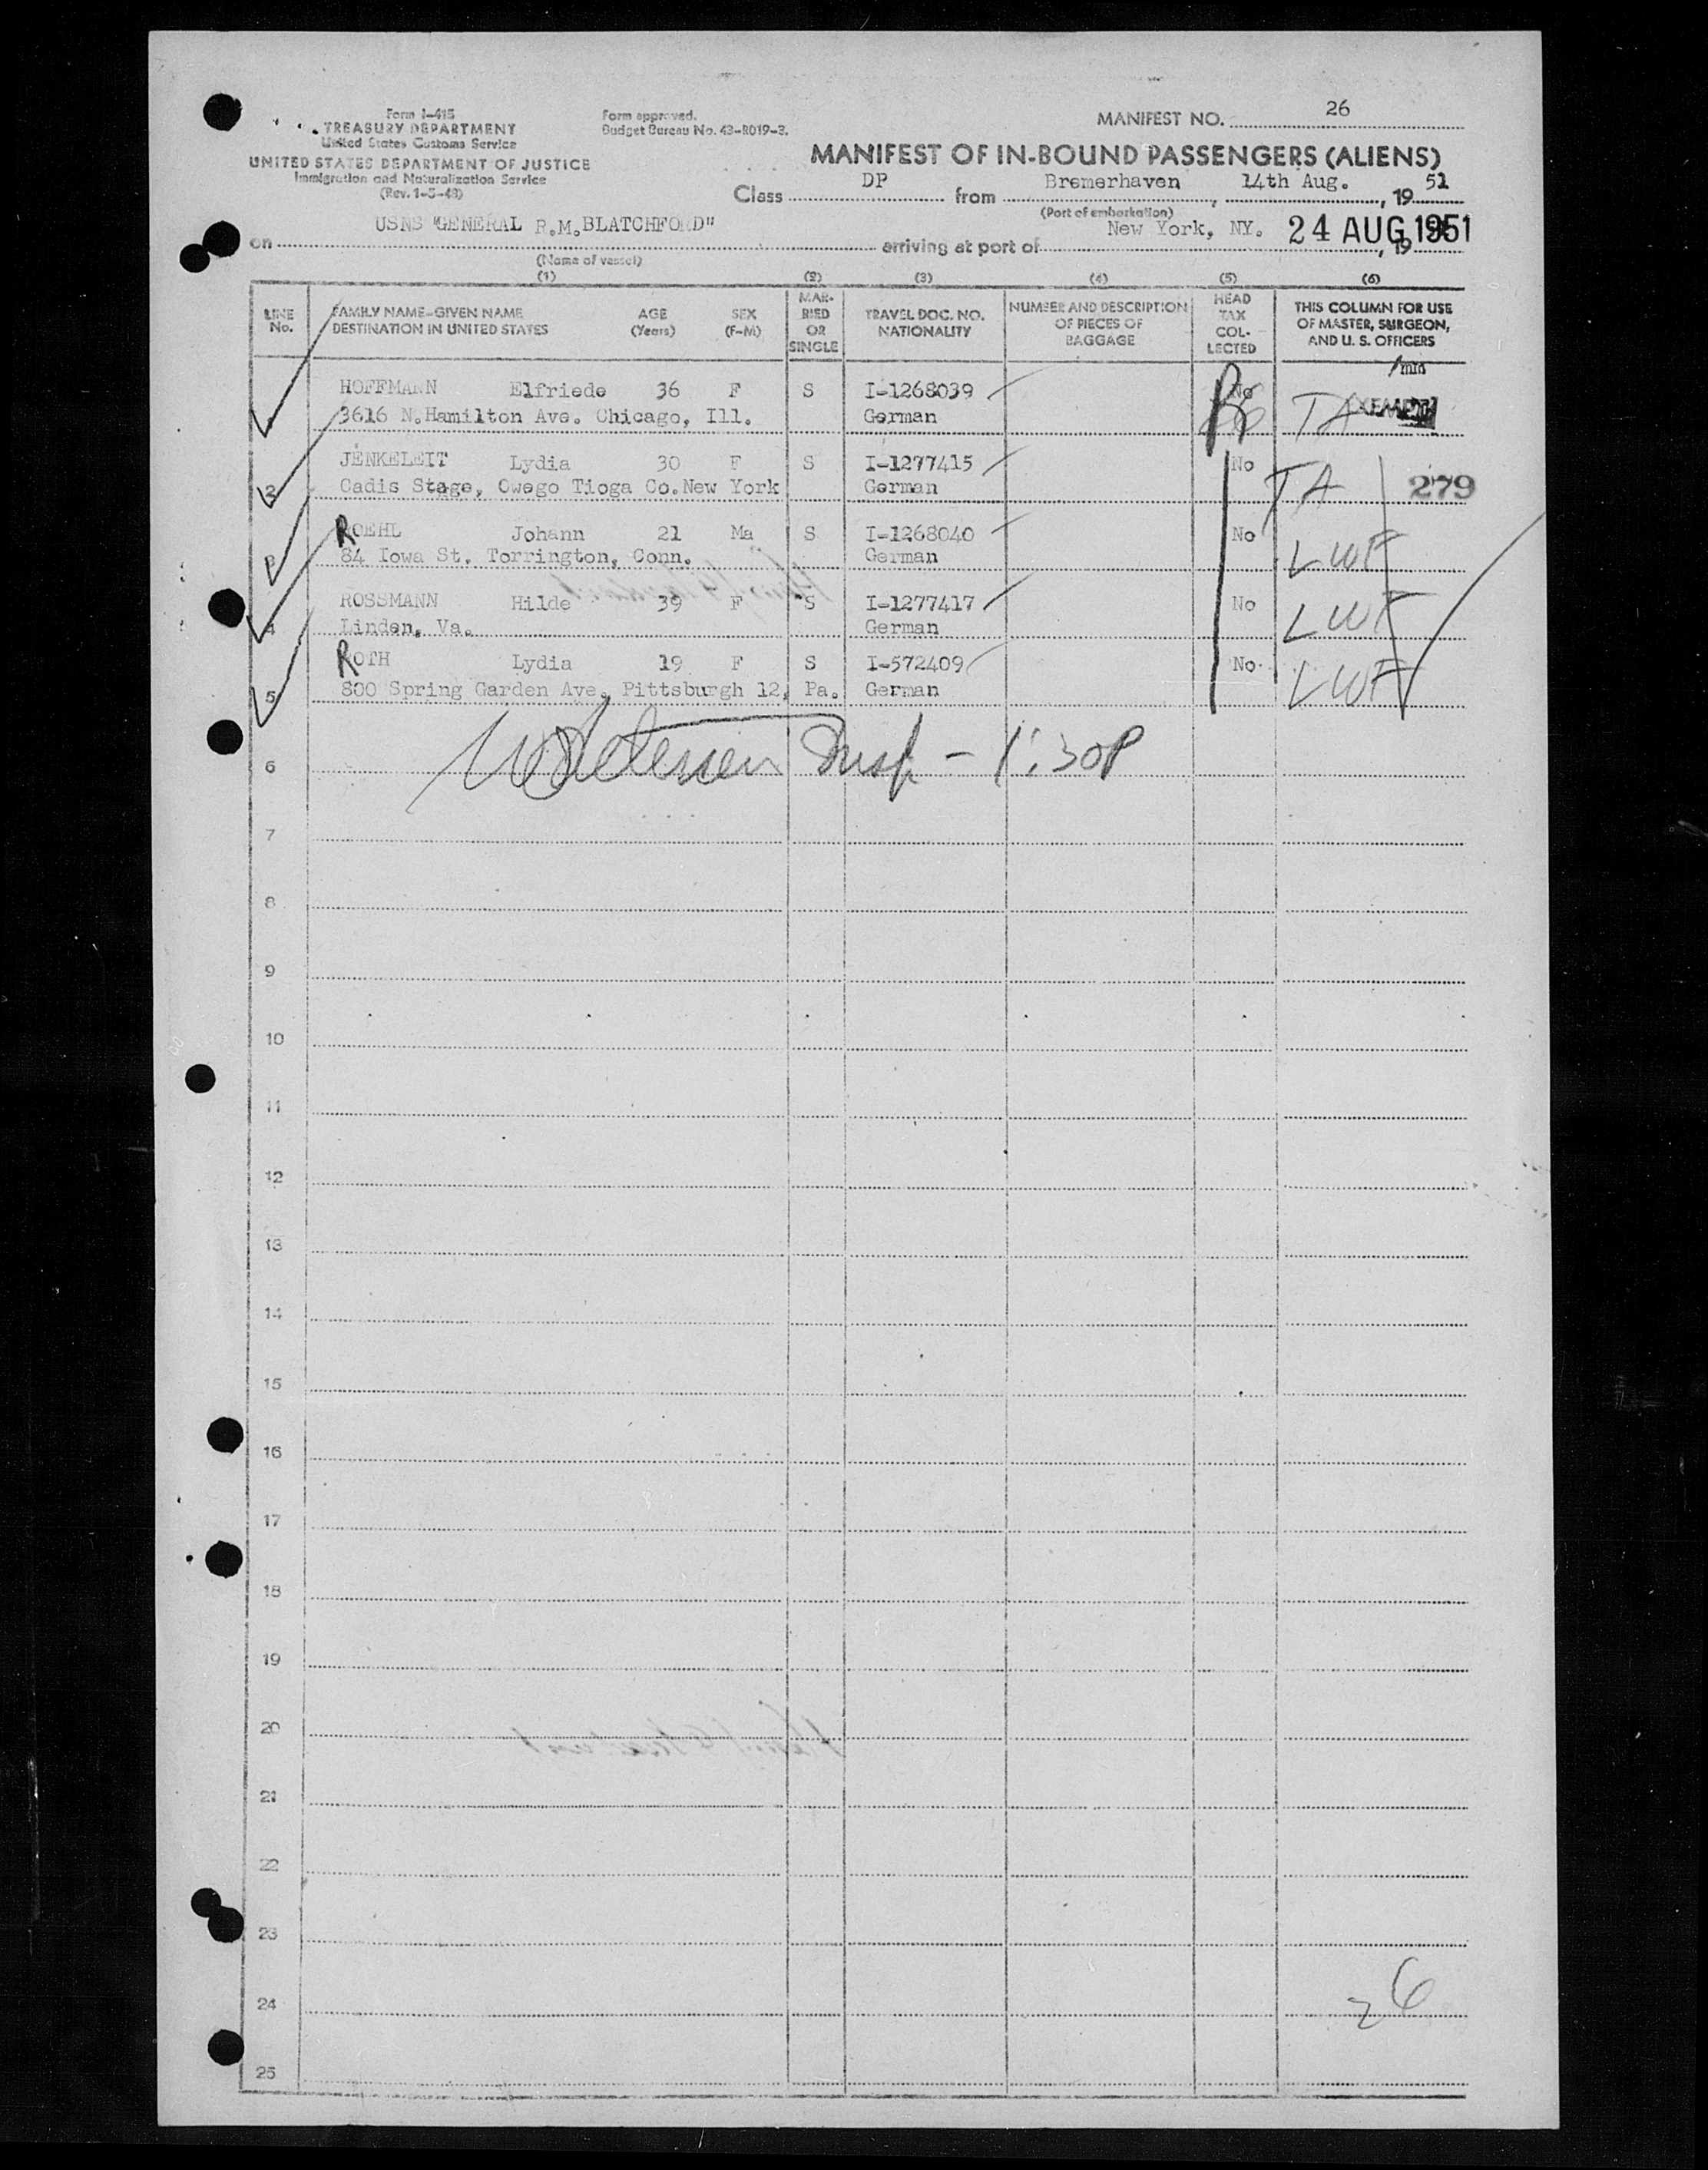 Form I-415
TREASURY DEPARTMENT
United States Customs Service
UNITED STATES DEPARTMENT OF JUSTICE
Immigration and Naturalization Service
(Rev. 1-5-48)
Form approved.
Budget Bureau No. 43-R019-3.
MANIFEST NO. 26
MANIFEST OF IN-BOUND PASSENGERS (ALIENS)
Class DP from Bremerhaven, 14th Aug., 1951
(Port of embarkation)
on USNS "GENERAL R.M.BLATCHFORD" arriving at port of New York, NY. 24 AUG 1951, 19
(Name of vessel)
(1) (2) (3) (4) (5) (6)
LINE No. FAMILY NAME-GIVEN NAME DESTINATION IN UNITED STATES AGE (Years) SEX (F-M) MARRIED OR SINGLE TRAVEL DOC. NO. NATIONALITY NUMBER AND DESCRIPTION OF PIECES OF BAGGAGE HEAD TAX COLLECTED THIS COLUMN FOR USE OF MASTER, SURGEON, AND U. S. OFFICERS
HOFFMANN Elfriede 36 F S I-1268039 No TA EXEMPT
3616 N.Hamilton Ave. Chicago, Ill. German
JENKELEIT Lydia 30 F S I-1277415 No TA 279
2 Cadis Stage, Owego Tioga Co.New York German
ROEHL Johann 21 Ma S I-1268040 No LWF
3 84 Iowa St. Torrington, Conn. German
ROSSMANN Hilde 39 F S I-1277417 No LWF
4 Linden, Va. German
ROTH Lydia 19 F S I-572409 No LWF
5 800 Spring Garden Ave. Pittsburgh 12, Pa. German
6 Insp - 1:30P
7
8
9
10
11
12
13
14
15
16
17
18
19
20
21
22
23
24 26
25